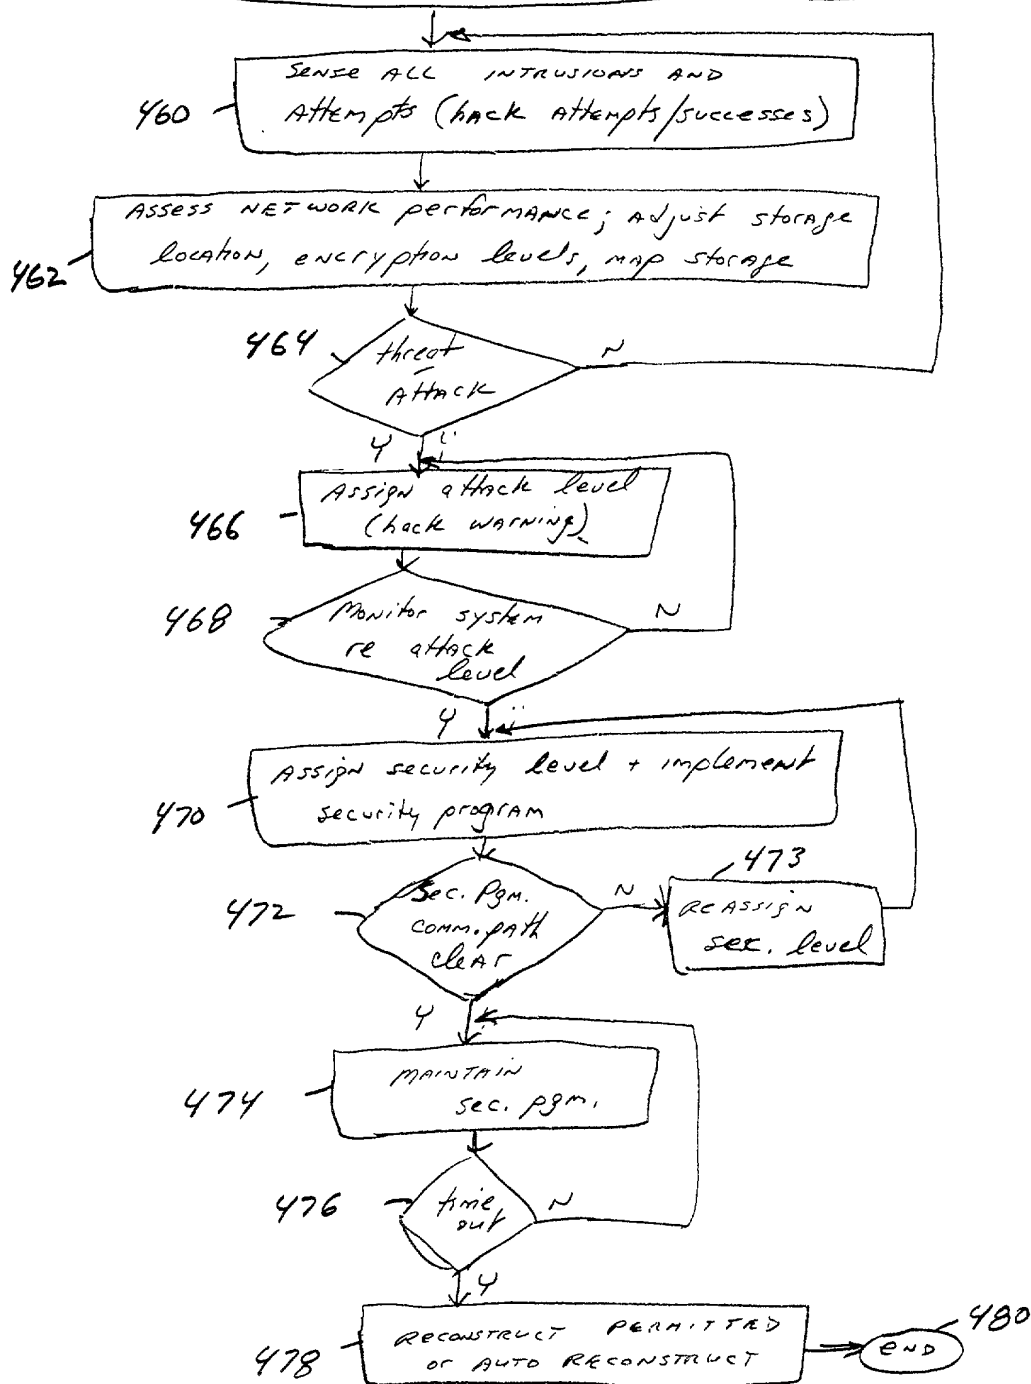 SENSE ALL INTRUSIONS AND
460
Attempts (hack Attempts/successes)
ASSESS NETWORK performance; Adjust storage
462
location, encryption levels, map storage
464
threat
N
Attack
Y
Assign attack level
466
(hack warning)
468
Monitor system
N
re attack
level
Y
Assign security level + implement
470
security program
473
472
Sec. Pgm.
N
comm. path
clear
REASSIGN
sec. level
Y
474
MAINTAIN
sec. pgm.
476
time
N
out
Y
RECONSTRUCT PERMITTED
480
478
or AUTO RECONSTRUCT
END